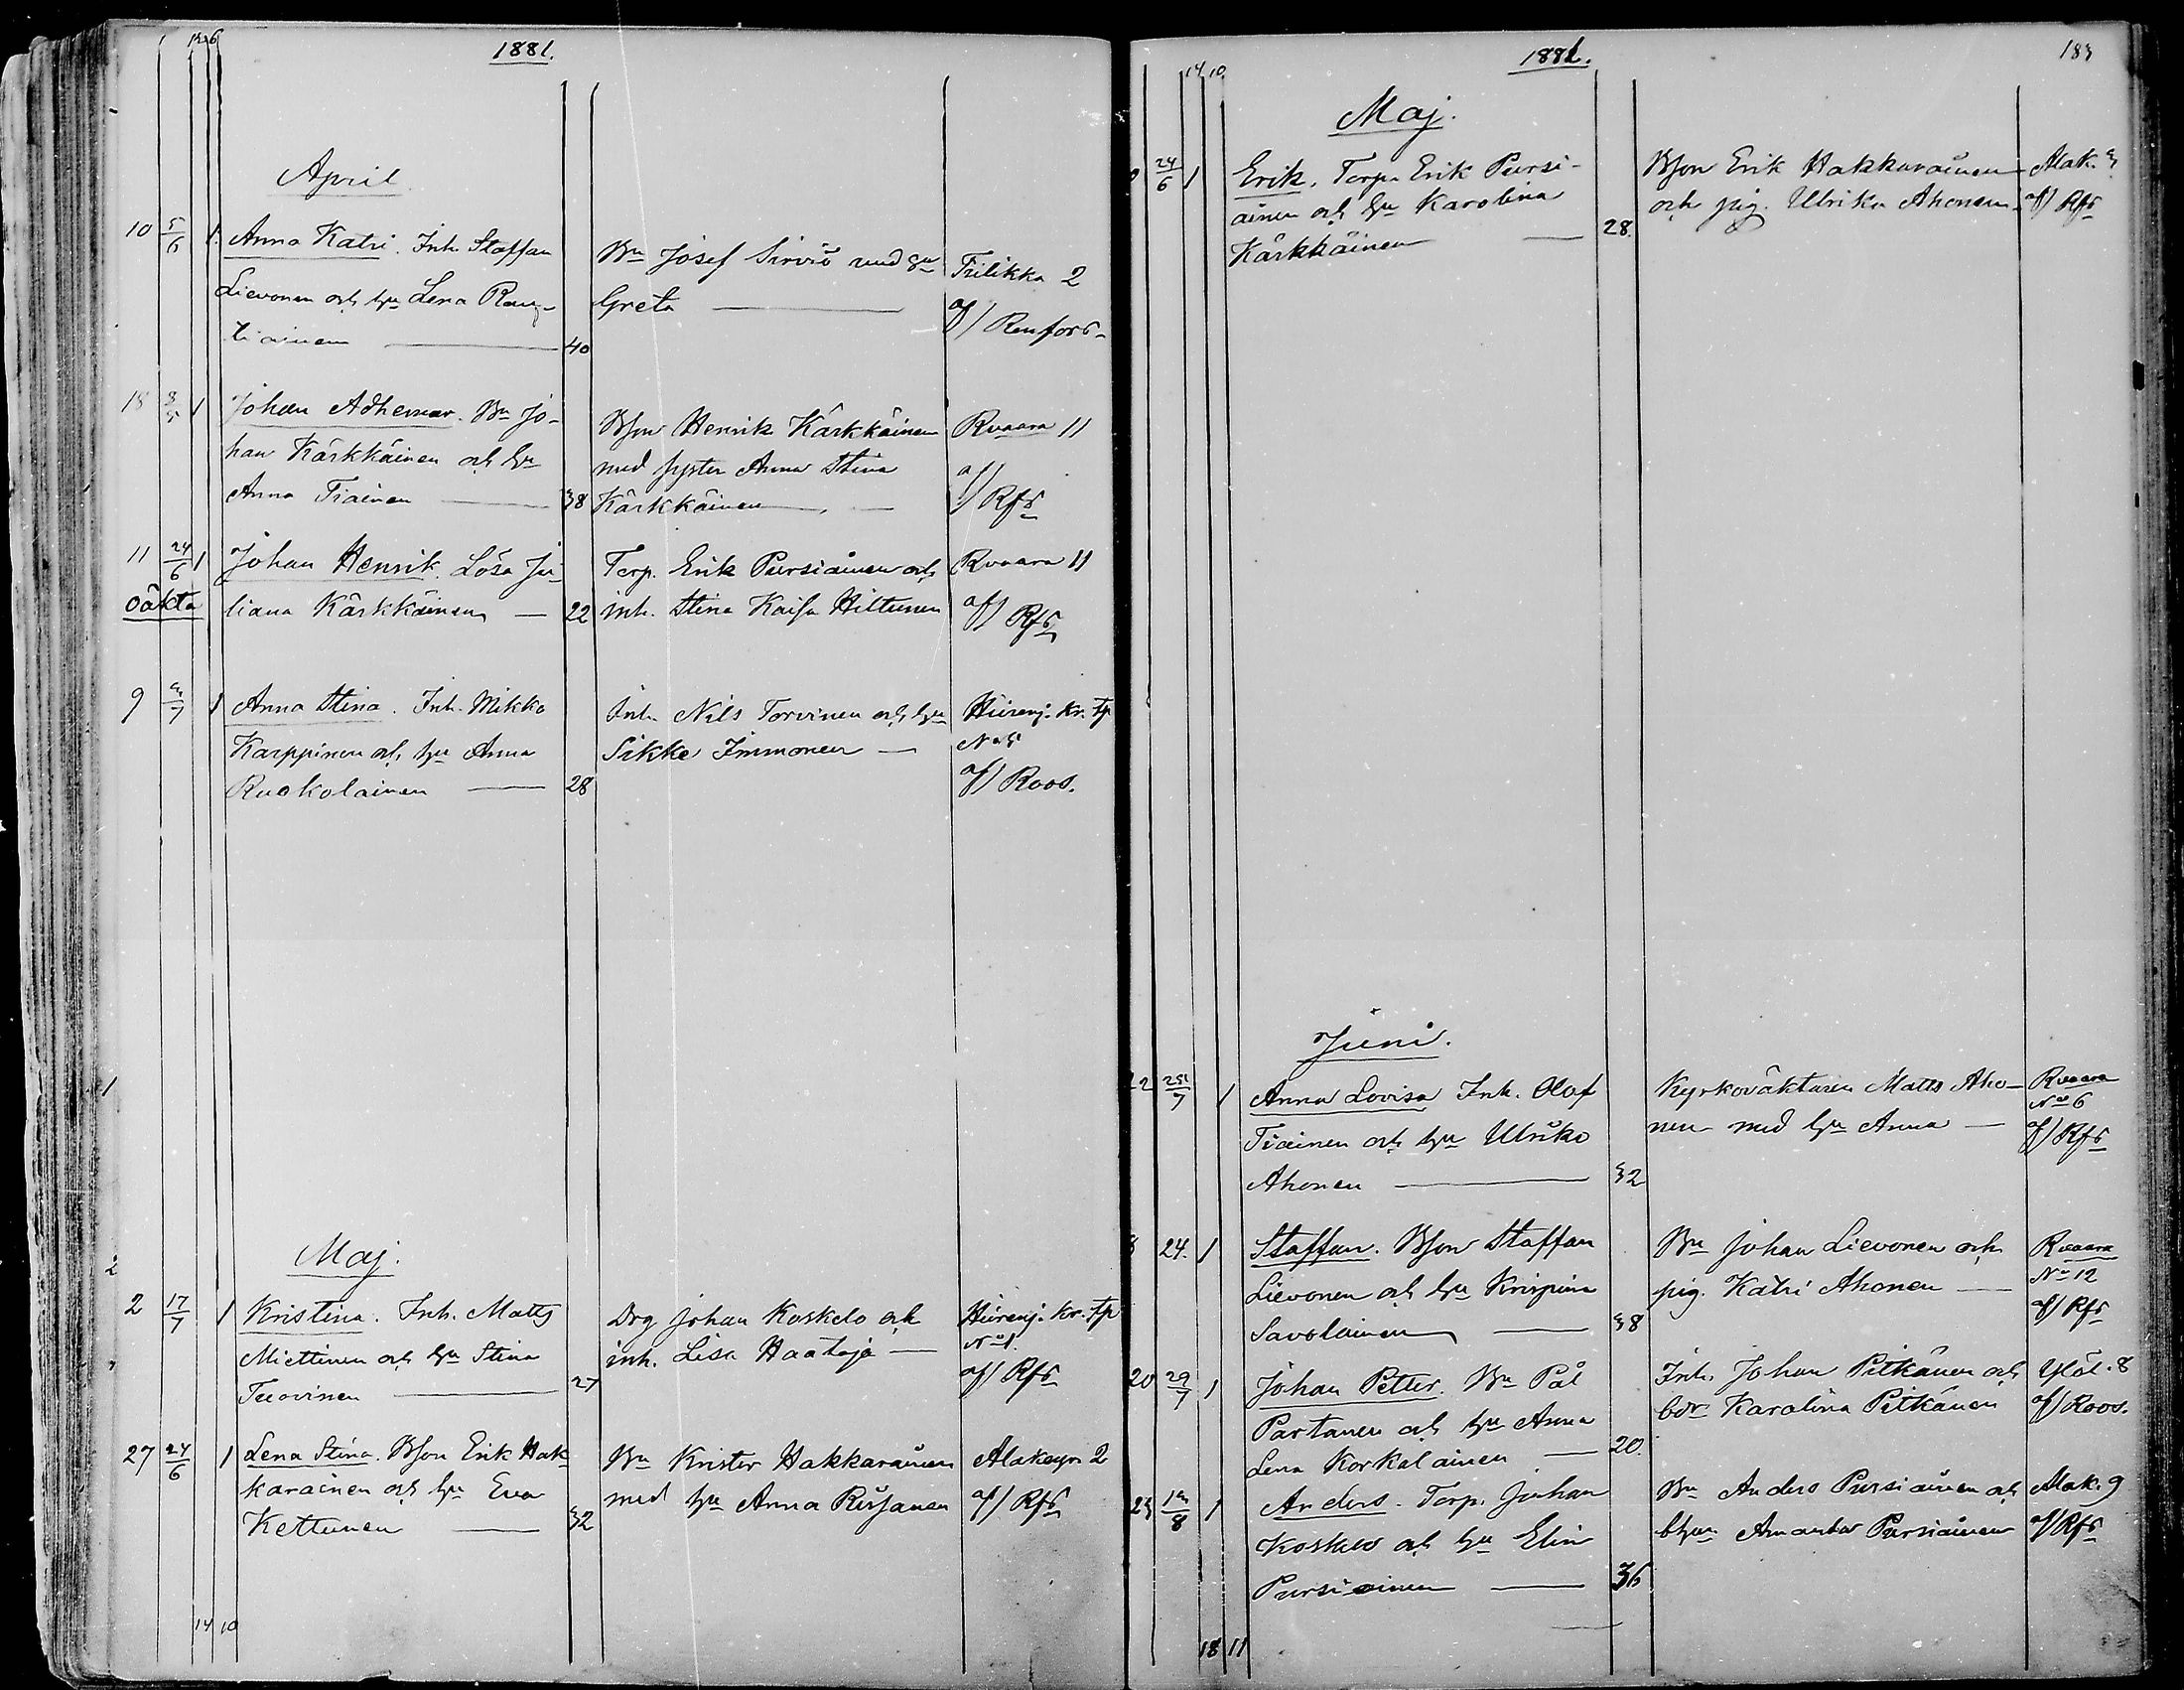 1881.
April
10 5/6 1. Anna Katri. Inh. Staffan
Lievonen och hu Lena Rau-
tiainen — 40
Bn Josef Sirviö med hu
Greta —
Tulikka 2
af/ Renfors
18 8/5 1 Johan Adhemar. Bn Jo-
han Kärkkäinen och hu
Anna Tiainen — 38
Bson Henrik Kärkkäinen
med syster Anna Stina
Kärkkäinen —
Rvaara 11
af/ Rfs
11 24/6 1 Johan Henrik. Lösa Ju-
oäkta liana Kärkkäinen — 22
Torp. Erik Pursiainen och
inh. Stina Kaisa Hiltunen
Rvaara 11
af/ Rfs
9 3/7 1 Anna Stina. Inh. Mikko
Karppinen och hu Anna
Ruokolainen — 28
Inh. Nils Torvinen och hu
Sikke Immonen —
Hiirenj. Kr. tp
af/ Roos.
Maj.
2 17/7 1 Kristina. Inh. Matts
Miettinen och hu Stina
Tuovinen — 27
Drg Johan Koskelo och
inh. Lisa Haataja —
Hiirenj. Kr. tp
No 1.
af/ Rfs
27 24/6 1 Lena Stina. Bson Erik Hak-
karainen och hu Eva
Kettunen — 32
Bn Krister Hakkarainen
med hu Anna Reijonen
Alakyn 2
af/ Rfs
14 10
1881. 183
14 10
Maj.
24/6 1 Erik. Torp. Erik Pursi-
ainen och hu Karolina
Kärkkäinen — 28.
Bson Erik Hakkarainen
och pig. Ulrika Ahonen
Alak. 3
af/ Rfs
Juni.
22 25/7 1 Anna Lovisa Inh. Olof
Tiainen och hu Ulrika
Ahonen — 32
Kyrkoväktaren Matts Aho-
nen med hu Anna —
Rvaara
No 6
af/ Rfs
24. 1 Staffan. Bson Staffan
Lievonen och hu Krispina
Savolainen — 38
Bn Johan Lievonen och
pig. Katri Ahonen —
Rvaara
No 12
af/ Rfs
20 29/7 1 Johan Petter. Bn Pål
Partanen och hu Anna
Lena Korkalainen — 20.
Inh. Johan Pitkänen och
bdr Karolina Pitkänen
Ylöl. 8
af/ Roos.
23 13/8 1 Anders. Torp. Johan
Koskelo och hu Elin
Pursiainen — 36
Bn Anders Pursiainen och
bhu Amanda Pursiainen
Alak. 9
af/ Rfs
18 11